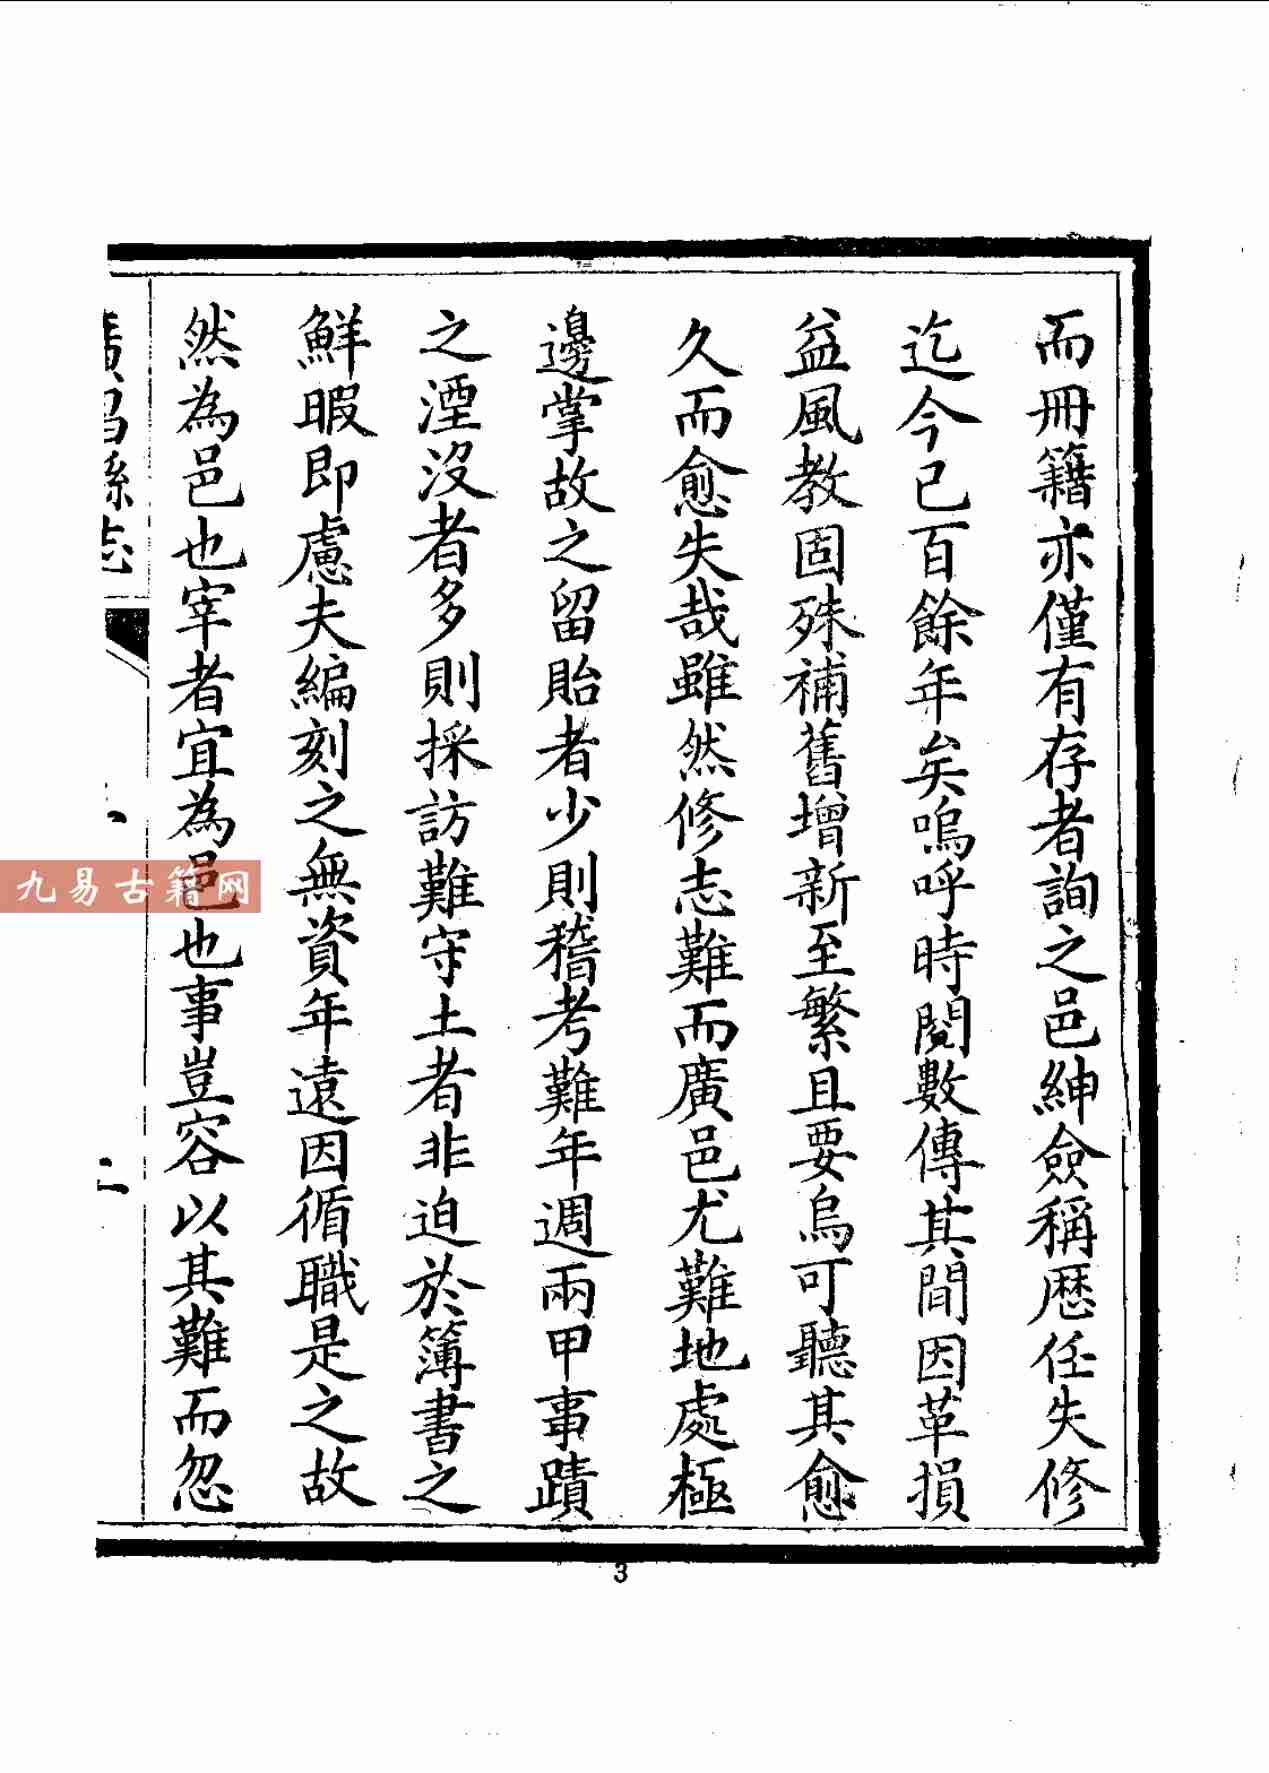 而冊籍亦僅有存者詢之邑紳僉稱歷任失修
迄今已百餘年矣嗚呼時閱數傳其間因革損
益風教固殊補舊增新至繁且要烏可聽其愈
久而愈失哉雖然修志難而廣邑尤難地處極
邊掌故之留貽者少則稽考難年週兩甲事蹟
之湮沒者多則採訪難守土者非迫於簿書之
鮮暇即慮夫編刻之無資年遠因循職是之故
然為邑也宰者宜為邑也事豈容以其難而忽
廣昌縣志
九易古籍网
3